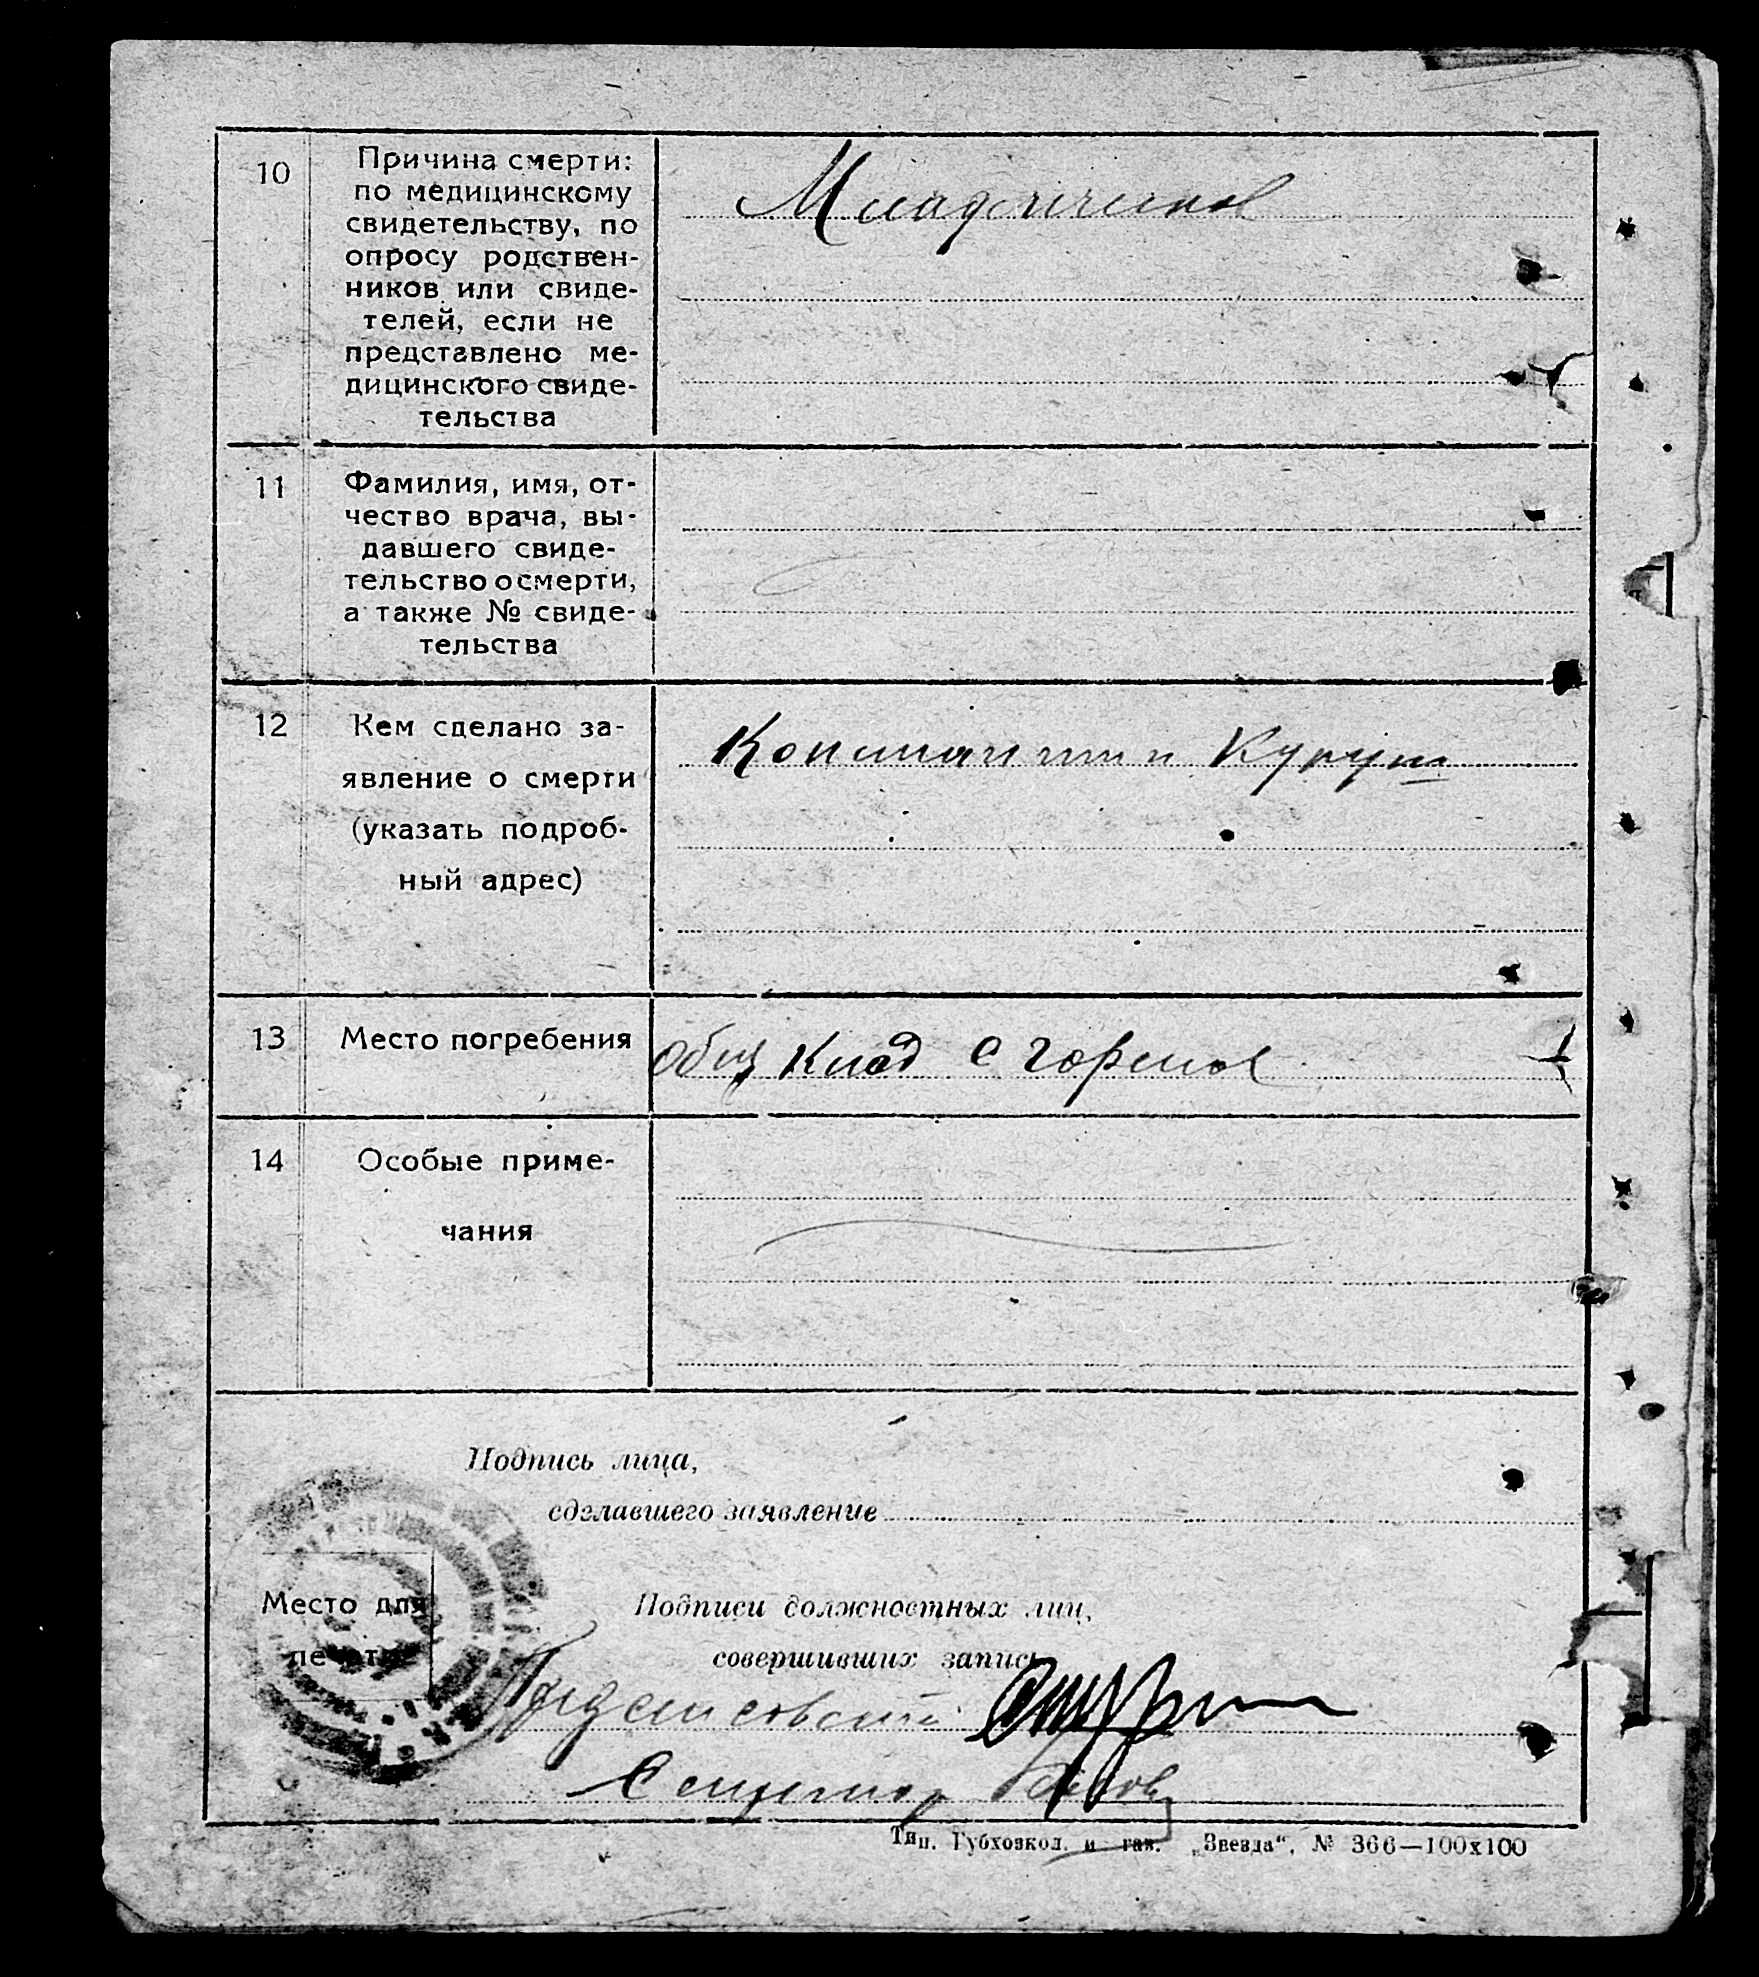 10
Причина смерти:
по медицинскому
свидетельству, по
опросу родствен-
ников или свиде-
телей, если не
представлено ме-
дицинского свиде-
тельства
Младенческая
11
Фамилия, имя, от-
чество врача, вы-
давшего свиде-
тельство о смерти,
а также № свиде-
тельства
12
Кем сделано за-
явление о смерти
(указать подроб-
ный адрес)
Константин
13
Место погребения
Общ Клад с
14
Особые приме-
чания
Подпись лица,
сделавшего заявление
Место для
печати
Подписи должностных лиц,
совершивших запись
Тип. Губхозкол. и газ. „Звезда“, № 366—100х100